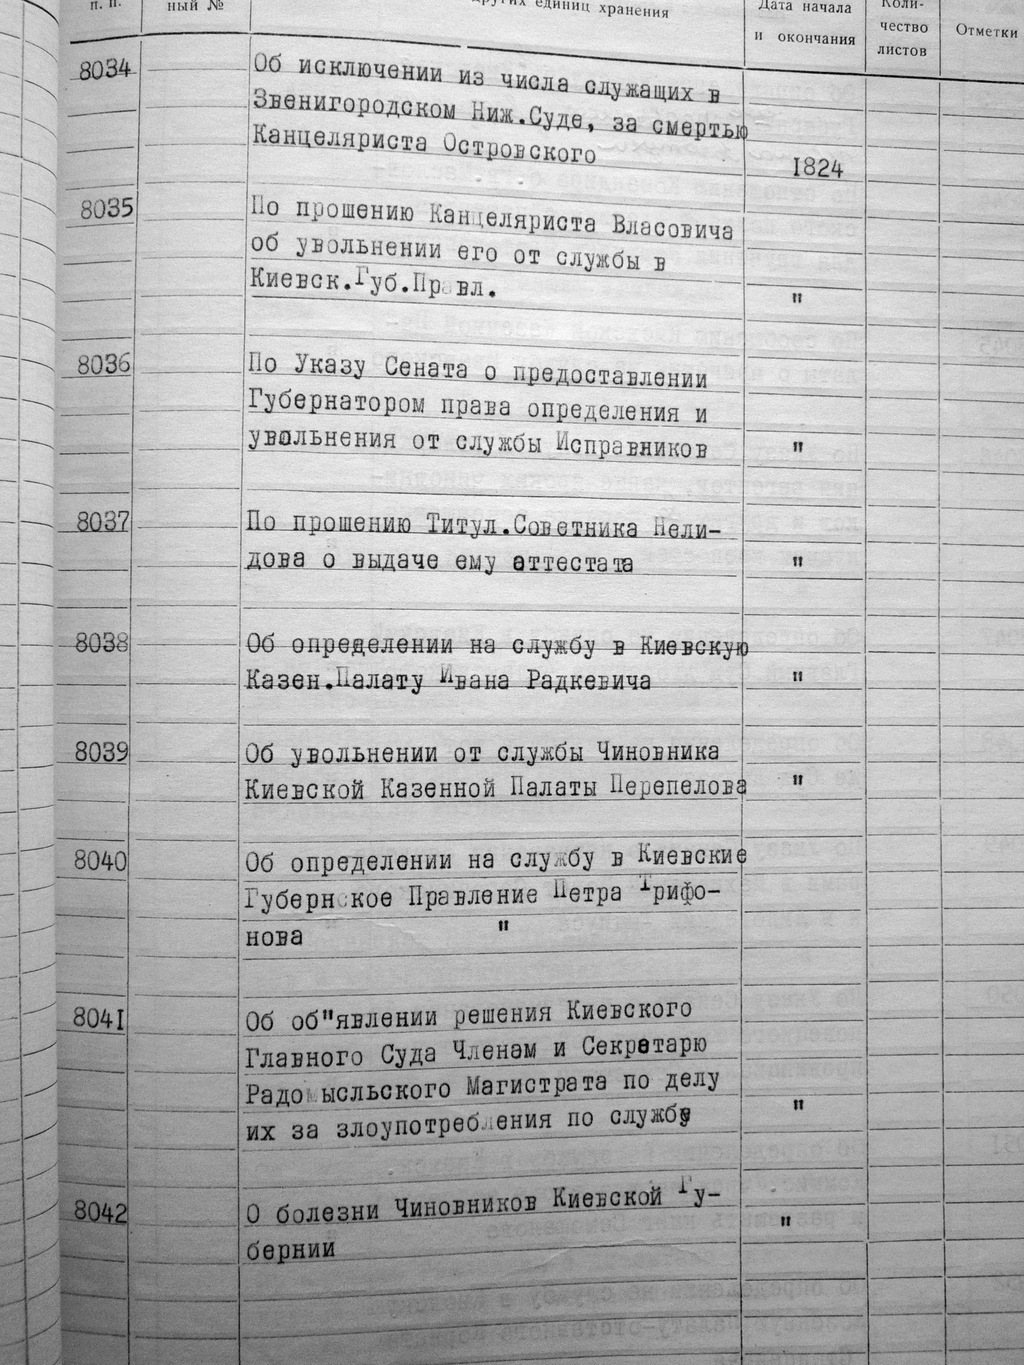 п. п.
ный №
других единиц хранения
Дата начала
и окончания
Коли-
чество
листов
Отметки
8034
Об исключении из числа служащих в
Звенигородском Ниж.Суде, за смертью
Канцеляриста Островского
1824
8035
По прошению Канцеляриста Власовича
об увольнении его от службы в
Киевск.Губ.Правл.
"
8036
По Указу Сената о предоставлении
Губернатором права определения и
увольнения от службы Исправников
"
8037
По прошению Титул.Советника Нели-
дова о выдаче ему аттестата
"
8038
Об определении на службу в Киевскую
Казен.Палату Ивана Радкевича
"
8039
Об увольнении от службы Чиновника
Киевской Казенной Палаты Перепелова
"
8040
Об определении на службу в Киевские
Губернское Правление Петра Трифо-
нова "
8041
Об об"явлении решения Киевского
Главного Суда Членам и Секретарю
Радомысльского Магистрата по делу
их за злоупотребления по службе
"
8042
О болезни Чиновников Киевской Гу-
бернии
"